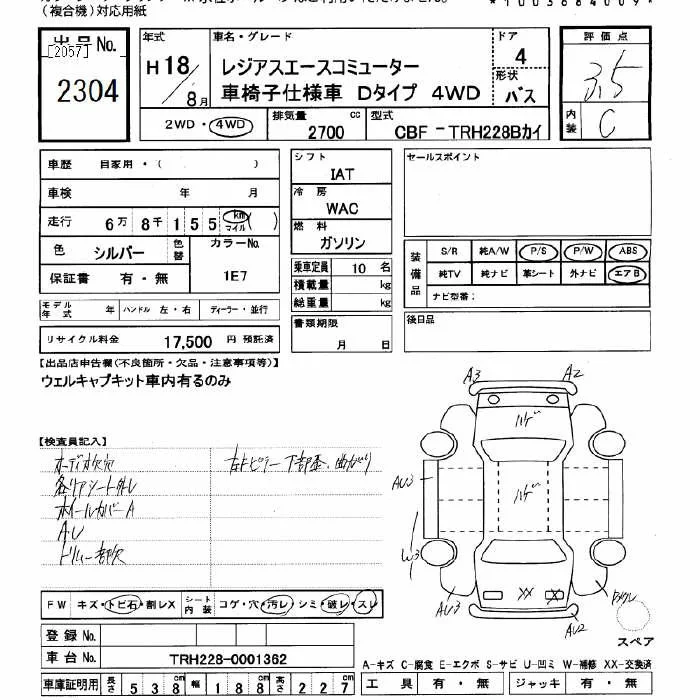 (複合機)対応用紙
*1003684009*
出品No.
[2057]
2304
年式
H18/8月
車名・グレード
レジアスエースコミューター
車椅子仕様車 Dタイプ 4WD
ドア
4
形状
バス
評価点
3.5
内装
C
2WD・4WD
排気量
2700 cc
型式
CBF-TRH228Bカイ
車歴 自家用・( )
車検 年 月
走行 6万8千155 km マイル ( )
色 シルバー 色替
カラーNo.
1E7
保証書 有・無
モデル年式 年 ハンドル 左・右 ディーラー・並行
リサイクル料金 17,500 円 預託済
シフト
IAT
冷房
WAC
燃料
ガソリン
乗車定員 10 名
積載量 kg
総重量 kg
書類期限
月 日
セールスポイント
装備品
S/R 純A/W P/S P/W ABS
純TV 純ナビ 革シート 外ナビ エアB
ナビ型番:
後日品
【出品店申告欄(不良箇所・欠品・注意事項等)】
ウェルキャブキット車内有るのみ
【検査員記入】
オーディオ欠穴
各リアシート外レ
ホイールカバーA
A・U
トリム一部欠
A3
A2
ハゲ
ハゲ
AU3
W3
AU3
XX
X
AU2
スペア
FW キズ・トビ石・割レX
シート内装 コゲ・穴・汚レ・シミ・破レ・スレ
登録No.
車台No. TRH228-0001362
車庫証明用 長さ 538 幅 188 高さ 227
A-キズ C-腐食 E-エクボ S-サビ U-凹ミ W-補修 XX-交換済
工具 有・無 ジャッキ 有・無